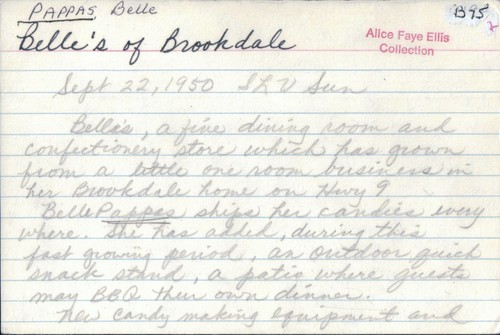 PAPPAS, Belle
B95
2
Belle's of Brookdale
Alice Faye Ellis
Collection
Sept 22, 1950 SLV Sun
Bella's, a fine dining room and
confectionery store which has grown
from a little one room business in
her Brookdale home on Hwy 9
Belle Pappas ships her candies every
where. She has added, during this
fast growing period, an outdoor quick
snack stand, a patio where guests
may BBQ their own dinner.
New candy making equipment and